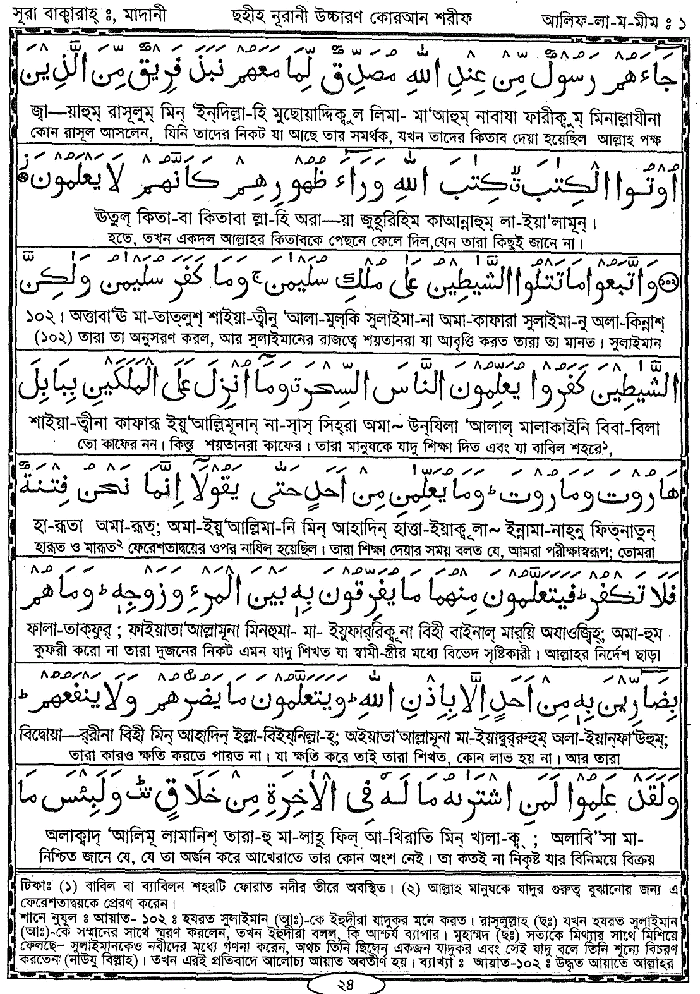 সূরা বাক্বারাহ্ ঃ, মাদানী ছহীহ নূরানী উচ্চারণ কোরআন শরীফ আলিফ-লা-ম-মীম ঃ ১
جَاءَهُمْ رَسُولٌ مِنْ عِنْدِ اللهِ مُصَدِّقٌ لِمَا مَعَهُمْ نَبَذَ فَرِيقٌ مِنَ الَّذِينَ
জ্বা—য়াহুম্ রাসূলুম্ মিন্ ‘ইন্দিল্লা-হি মুছোয়াদ্দিক্বুল লিমা- মা‘আহুম্ নাবাযা ফারীক্বুম্ মিনাল্লাযীনা
কোন রাসূল আসলেন, যিনি তাদের নিকট যা আছে তার সমর্থক, যখন তাদের কিতাব দেয়া হয়েছিল আল্লাহ পক্ষ
أُوتُوا الْكِتٰبَ كِتٰبَ اللهِ وَرَاءَ ظُهُورِهِمْ كَأَنَّهُمْ لَا يَعْلَمُونَ
ঊতুল্ কিতা-বা কিতাবা ল্লা-হি অরা—য়া জুহূরিহিম্ কাআন্নাহুম্ লা-ইয়া’লামূন্।
হতে, তখন একদল আল্লাহর কিতাবকে পেছনে ফেলে দিল,যেন তারা কিছুই জানে না।
وَاتَّبَعُوا مَا تَتْلُوا الشَّيٰطِينُ عَلٰى مُلْكِ سُلَيْمٰنَ وَمَا كَفَرَ سُلَيْمٰنُ وَلٰكِنَّ
১০২। অত্তাবা‘ঊ মা-তাত্লুশ্ শাইয়া-ত্বীনু ‘আলা-মুল্কি সুলাইমা-না অমা-কাফারা সুলাইমা-নু অলা-কিন্নাশ্
(১০২) তারা তা অনুসরণ করল, আর সুলাইমানের রাজত্বে শয়তানরা যা আবৃত্তি করত তারা তা মানত। সুলাইমান
الشَّيٰطِينَ كَفَرُوا يُعَلِّمُونَ النَّاسَ السِّحْرَ وَمَا أُنْزِلَ عَلَى الْمَلَكَيْنِ بِبَابِلَ
শাইয়া-ত্বীনা কাফারূ ইয়ু‘আল্লিমূনান্ না-সাস্ সিহ্রা অমা~ উন্যিলা ‘আলাল্ মালাকাইনি বিবা-বিলা
তো কাফের নন। কিন্তু শয়তানরা কাফের। তারা মানুষকে যাদু শিক্ষা দিত এবং যা বাবিল শহরে১,
هَارُوتَ وَمَارُوتَ وَمَا يُعَلِّمٰنِ مِنْ أَحَدٍ حَتّٰى يَقُولَا إِنَّمَا نَحْنُ فِتْنَةٌ
হা-রূতা অমা-রূত্; অমা-ইয়ু‘আল্লিমা-নি মিন্ আহাদিন্ হাত্তা-ইয়াক্বূলা~ ইন্নামা-নাহ্নু ফিত্নাতুন্
হারূত ও মারূত২ ফেরেশতাদ্বয়ের ওপর নাযিল হয়েছিল। তারা শিক্ষা দেয়ার সময় বলত যে, আমরা পরীক্ষাস্বরূপ; তোমরা
فَلَا تَكْفُرْ فَيَتَعَلَّمُونَ مِنْهُمَا مَا يُفَرِّقُونَ بِهِ بَيْنَ الْمَرْءِ وَزَوْجِهِ وَمَا هُمْ
ফালা-তাক্ফুর্ ; ফাইয়াতা‘আল্লামূনা মিন্হুমা- মা- ইয়ুফার্রিক্বূনা বিহী বাইনাল্ মার্য়ি অযাওজিহ্; অমা-হুম
কুফরী করো না তারা দুজনের নিকট এমন যাদু শিখত যা স্বামী-স্ত্রীর মধ্যে বিভেদ সৃষ্টিকারী। আল্লাহর নির্দেশ ছাড়া
بِضَارِّينَ بِهِ مِنْ أَحَدٍ إِلَّا بِإِذْنِ اللهِ وَيَتَعَلَّمُونَ مَا يَضُرُّهُمْ وَلَا يَنْفَعُهُمْ
বিদ্বোয়া—র্রীনা বিহী মিন্ আহাদিন্ ইল্লা-বিইয্নিল্লা-হ্; অইয়াতা‘আল্লামূনা মা-ইয়াদ্বুর্রুহুম্ অলা-ইয়ান্ফা‘উহুম্;
তারা কারও ক্ষতি করতে পারত না। যা ক্ষতি করে তাই তারা শিখত, কোন লাভ হয় না। আর তারা
وَلَقَدْ عَلِمُوا لَمَنِ اشْتَرٰىهُ مَا لَهُ فِي الْاٰخِرَةِ مِنْ خَلَاقٍ وَلَبِئْسَ مَا
অলাক্বাদ্ ‘আলিমূ লামানিশ্ তারা-হু মা-লাহূ ফিল্ আ-খিরাতি মিন্ খালা-ক্ব্ ; অলাবি”সা মা-
নিশ্চিত জানে যে, যে তা অর্জন করে আখেরাতে তার কোন অংশ নেই। তা কতই না নিকৃষ্ট যার বিনিময়ে বিক্রয়
টিকাঃ (১) বাবিল বা ব্যাবিলন শহরটি ফোরাত নদীর তীরে অবস্থিত। (২) আল্লাহ মানুষকে যাদুর গুরুত্ব বুঝানোর জন্য এ
ফেরেশতাদ্বয়কে প্রেরণ করেন।
শানে নুযূল ঃ আয়াত- ১০২ ঃ হযরত সুলাইমান (আঃ)-কে ইহুদীরা যাদুকর মনে করত। রাসূলুল্লাহ (ছঃ) যখন হযরত সুলাইমান
(আঃ)-কে সম্মানের সাথে স্মরণ করলেন, তখন ইহুদীরা বলল, কি আশ্চর্য ব্যাপার। মুহাম্মদ (ছঃ) সত্যকে মিথ্যার সাথে মিশিয়ে
ফেলছে– সুলাইমানকেও নবীদের মধ্যে গণনা করেন, অথচ তিনি ছিলেন একজন যাদুকর এবং সেই যাদু বলে তিনি শূন্যে বিচরণ
করতেন (নাউযু বিল্লাহ)। তখন এরই প্রতিবাদে আলোচ্য আয়াত অবতীর্ণ হয়। ব্যাখ্যা ঃ আয়াত-১০২ ঃ উদ্ধৃত আয়াতে আল্লাহর
২৪